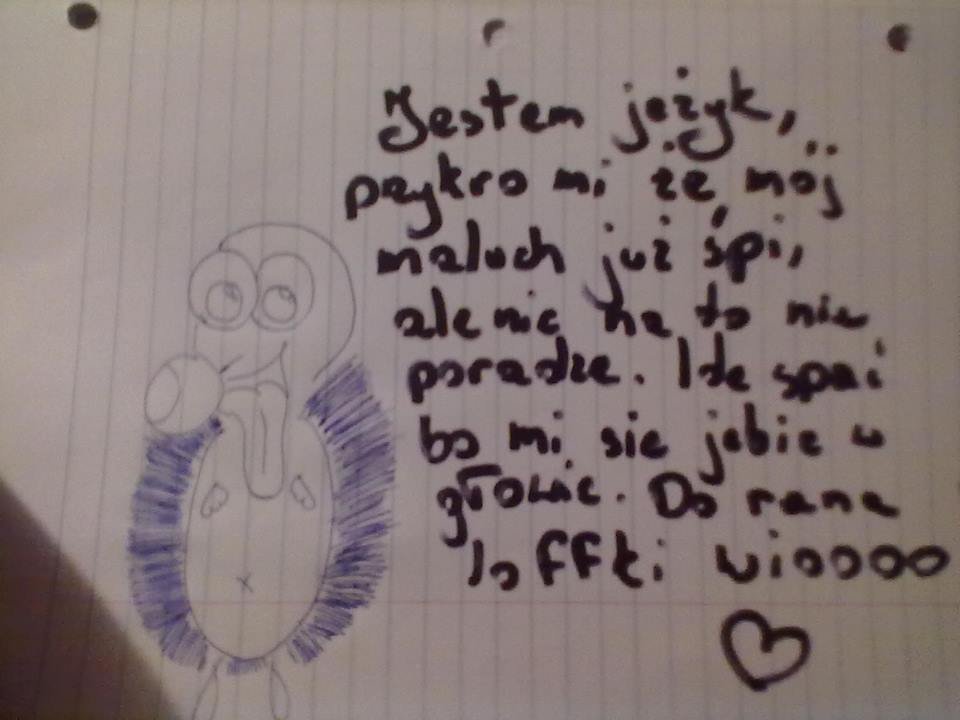 Jestem jeżyk,
pzykro mi że, mój
maluch już śpi,
ale nic na to nie
poradze. Ide spać
bo mi sie jebie w
głowie. Do rana
loffki wioooo